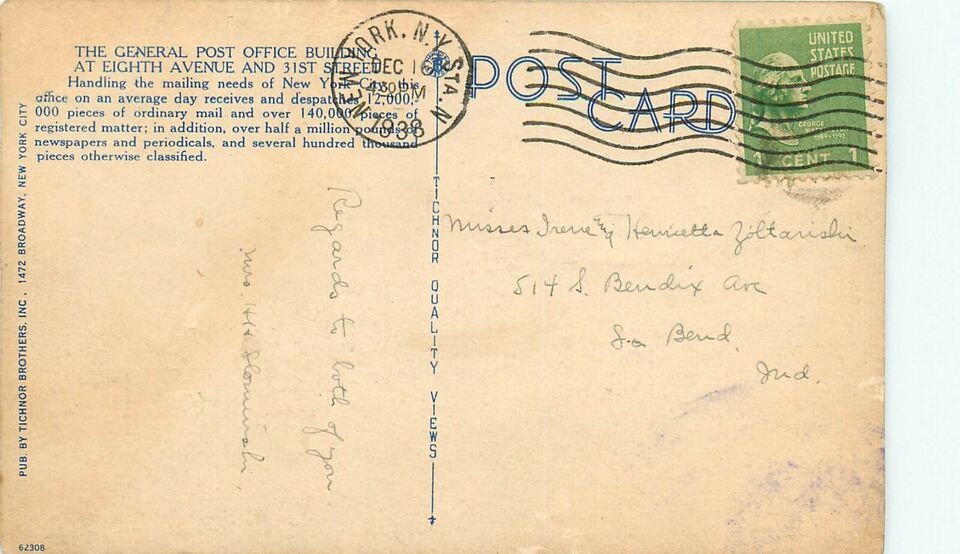 THE GENERAL POST OFFICE BUILDING
AT EIGHTH AVENUE AND 31ST STREET
Handling the mailing needs of New York City, this
office on an average day receives and despatches 12,000,
000 pieces of ordinary mail and over 140,000 pieces of
registered matter; in addition, over half a million pounds of
newspapers and periodicals, and several hundred thousand
pieces otherwise classified.
NEW YORK, N.Y. STA. N
DEC 16
4 30 PM
1938
POST
CARD
UNITED
STATES
POSTAGE
GEORGE
1 CENT 1
PUB. BY TICHNOR BROTHERS, INC., 1472 BROADWAY, NEW YORK CITY
TICHNOR QUALITY VIEWS
Regards to both of you
Mrs. HH
Misses Irene & Henrietta Zoltarishi
514 S. Bendix Ave
So Bend,
Ind.
62308